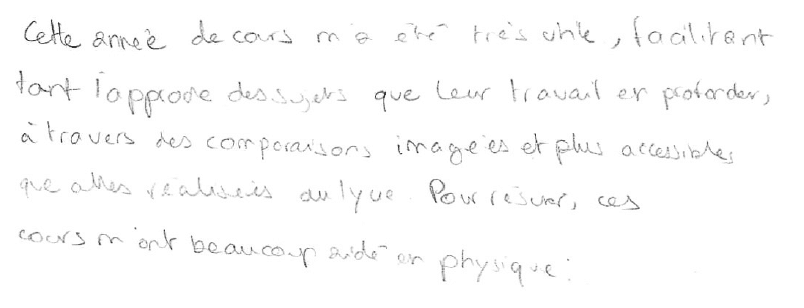 Cette année de cours m'a été très utile, facilitant
tant l'approche des sujets que leur travail en profondeur,
à travers des comparaisons imagées et plus accessibles
que celles réalisées au lycée. Pour résumer, ces
cours m'ont beaucoup aidé en physique.